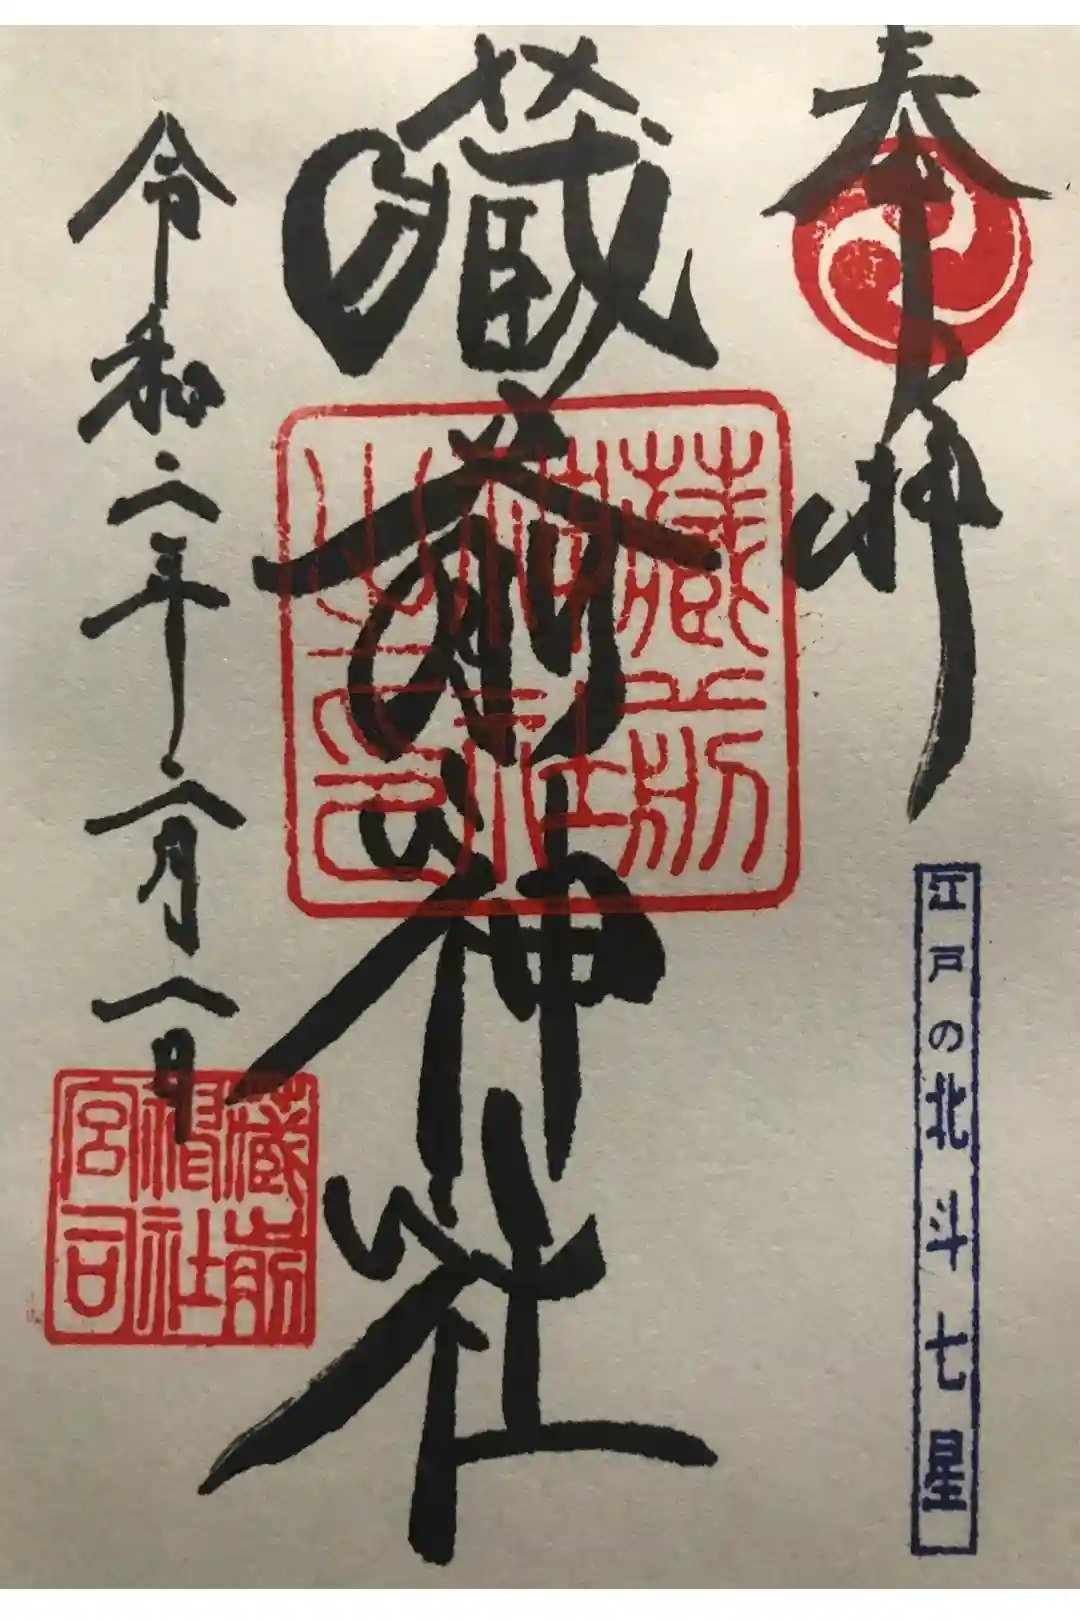 奉拝
江戸の北斗七星
藏前神社
藏前
神社
之印
令和二年六月八日
藏前
神社
宮司